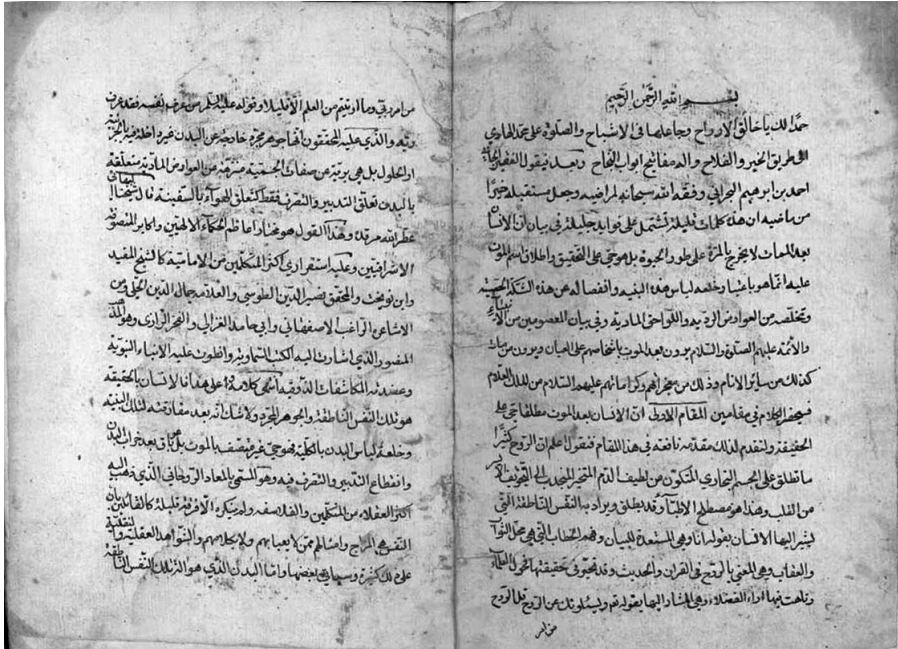 بسم الله الرحمن الرحيم
حمدًا لك يا خالق الارواح وجاعلها في الاشباح والصلوة على محمد الهادي
الى طريق الخير والفلاح واله مفاتيح ابواب النجاح وبعد فيقول الفقير
احمد بن ابرهيم البحراني وفقه الله سبحانه لمراضيه وجعل مستقبله خيرًا
من ماضيه ان هذه كلمات قليلة تشتمل على فوايد جليلة في بيان ان الانسان
بعد الممات لا يخرج بالمرة على طور الحيوة بل هو حي على التحقيق واطلاق اسم الموت
عليه انما هو باعتبار خلعه لباس هذه البنيه وانفصاله عن هذه
وتخلصه من العوارض الرديه واللواحق الماديه وفي بيان المعصومين من الانبياء
والائمة عليهم الصلوة والسلام يرون بعد الموت باشخاصهم على العيان ويرون من مات
كذلك من سائر الانام وذلك من معجزاتهم وكراماتهم عليهم السلام من الملك العلام
فيحضر الكلام في مقامين المقام الاول ان الانسان بعد الموت مطلقا حي على
الحقيقة ولنقدم لذلك مقدمه نافعه في هذا المقام فنقول اعلم ان الروح كثيرًا
ما تطلق على الجسم البخاري المتكون من لطيف الدم المنجذب الى التجويف الايسر
من القلب وهذا هو مصطلح الاطباء وقد يطلق ويراد به النفس الناطقة التي
يشير اليها الانسان بقوله انا وهي المستعدة للبيان وفهم الخطاب التي هي محل الثواب
والعقاب وهي المعني بالروح في القران والحديث وقد تحير في حقيقتها فحول العلماء
وتاهت فيها اراء الفضلاء وهي المشار اليها بقوله تع ويسئلونك عن الروح قل الروح
من امر
من امر ربي وما اوتيتم من العلم الا قليلا وقوله عليه السلم من عرف نفسه فقد عرف
ربه والذي عليه المحققون انها جوهر مجرد خارجه عن البدن غير داخلة فيه بالجزئية
او الحلول بل هي برية من صفات الجسمية منزهة عن العوارض المادية متعلقة
بالبدن تعلق التدبير والتصرف فقط كتعلق بالسفينة قال شيخنا البهائي
عطر الله مرقده وهذا القول هو مختار اعاظم الحكماء الالهيين واكابر المتصوفة
الاشراقيين وعليه استقر راي اكثر المتكلمين من الامامية كالشيخ المفيد
وابن نوبخت والمحقق نصير الدين الطوسي والعلامة جمال الدين الحلي ومن
الاشاعرة الراغب الاصفهاني وابي حامد الغزالي والفخر الرازي وهو المذهب
المنصور الذي اشارت اليه الكتب السماوية وانطوت عليه الانباء النبوية
وعضدته المكاشفات الذوقية انتهى كلامه فعلى هذا فالانسان بالحقيقة
هو تلك النفس الناطقة والجوهر المجرد ولا شك انه بعد مفارقته لتلك البنية
وخلعه لباس البدن بالكلية فهو حي غير متصف بالموت بل باق بعد خراب البدن
وانقطاع التدبير والتصرف فيه وهو المسمى بالمعاد الروحاني الذي ذهب اليه
اكثر العقلاء من المتكلمين والفلاسفه ولم ينكره الا فرقة قليلة كالقائلين بان
النفس هي المزاج وامثالهم ممن لا يعبا بهم ولا بكلامهم والشواهد العقلية والنقلية
على ذلك كثيرة وسياتي بعضها واما البدن الذي هو النفس الناطقة